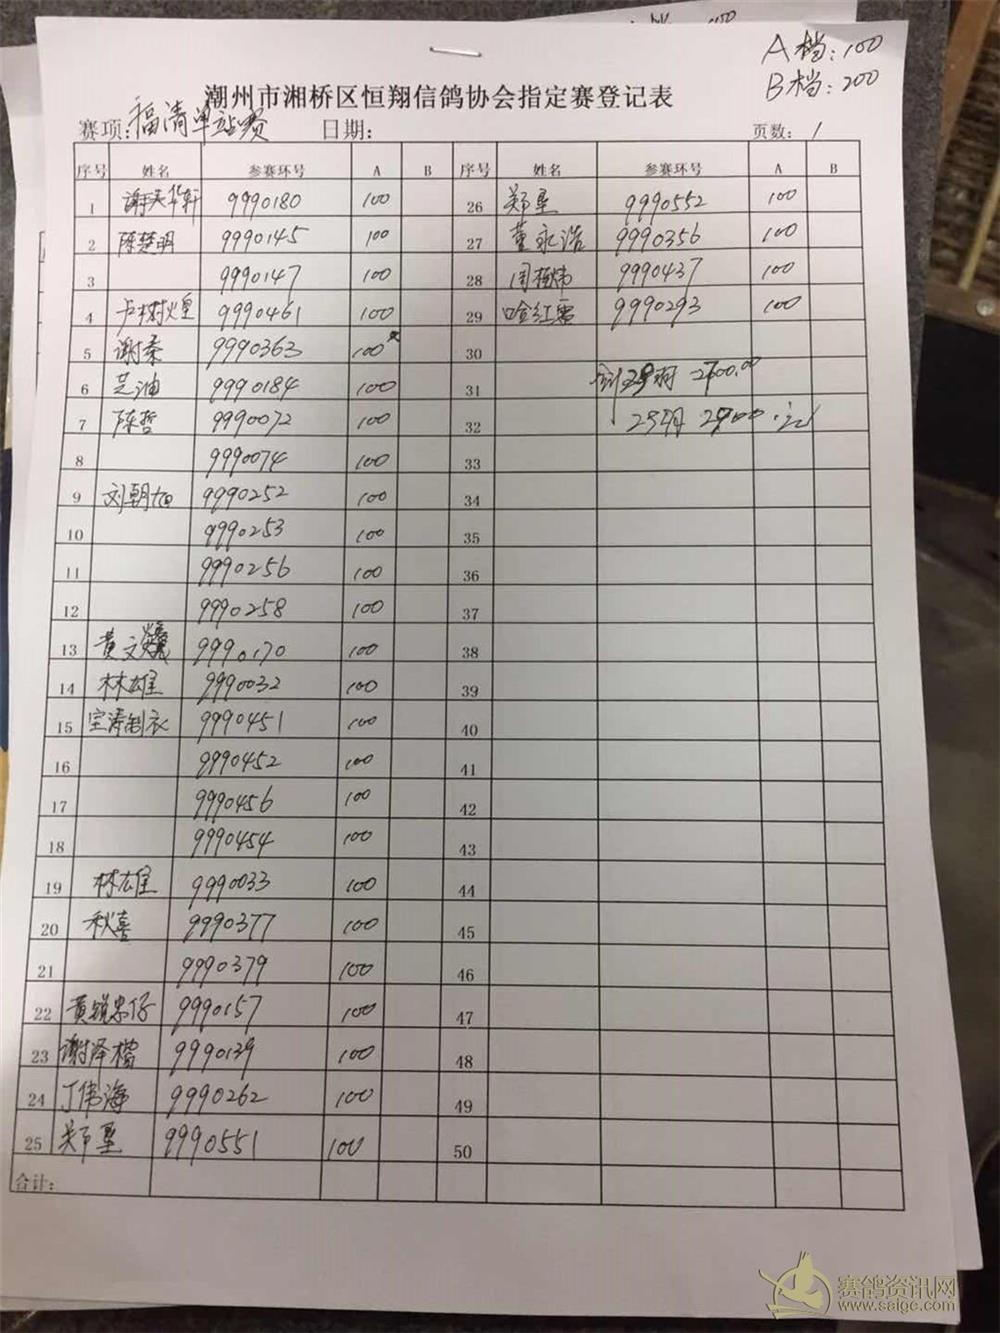 A档:100
B档:200
潮州市湘桥区恒翔信鸽协会指定赛登记表
赛项:福清单站赛 日期: 页数: 1
序号 姓名 参赛环号 A B 序号 姓名 参赛环号 A B
1 9990180 100 26 郑垦 9990552 100
2 陈楚明 9990145 100 27 董永浩 9990356 100
3 9990147 100 28 9990437 100
4 卢树煌 9990461 100 29 9990293 100
5 谢秦 9990363 100 30
6 芝油 9990184 100 31 2700.00
7 陈哲 9990072 100 32 2900.元
8 9990074 100 33
9 刘朝旭 9990252 100 34
10 9990253 100 35
11 9990256 100 36
12 9990258 100 37
13 黄文 9990170 100 38
14 林雄 9990032 100 39
15 宝涛制衣 9990451 100 40
16 9990452 100 41
17 9990456 100 42
18 9990454 100 43
19 林雄 9990033 100 44
20 秋喜 9990377 100 45
21 9990379 100 46
22 黄锐忠仔 9990157 100 47
23 谢泽楷 9990139 100 48
24 丁伟海 9990262 100 49
25 郑垦 9990551 100 50
合计:
赛鸽资讯网
www.saigc.com